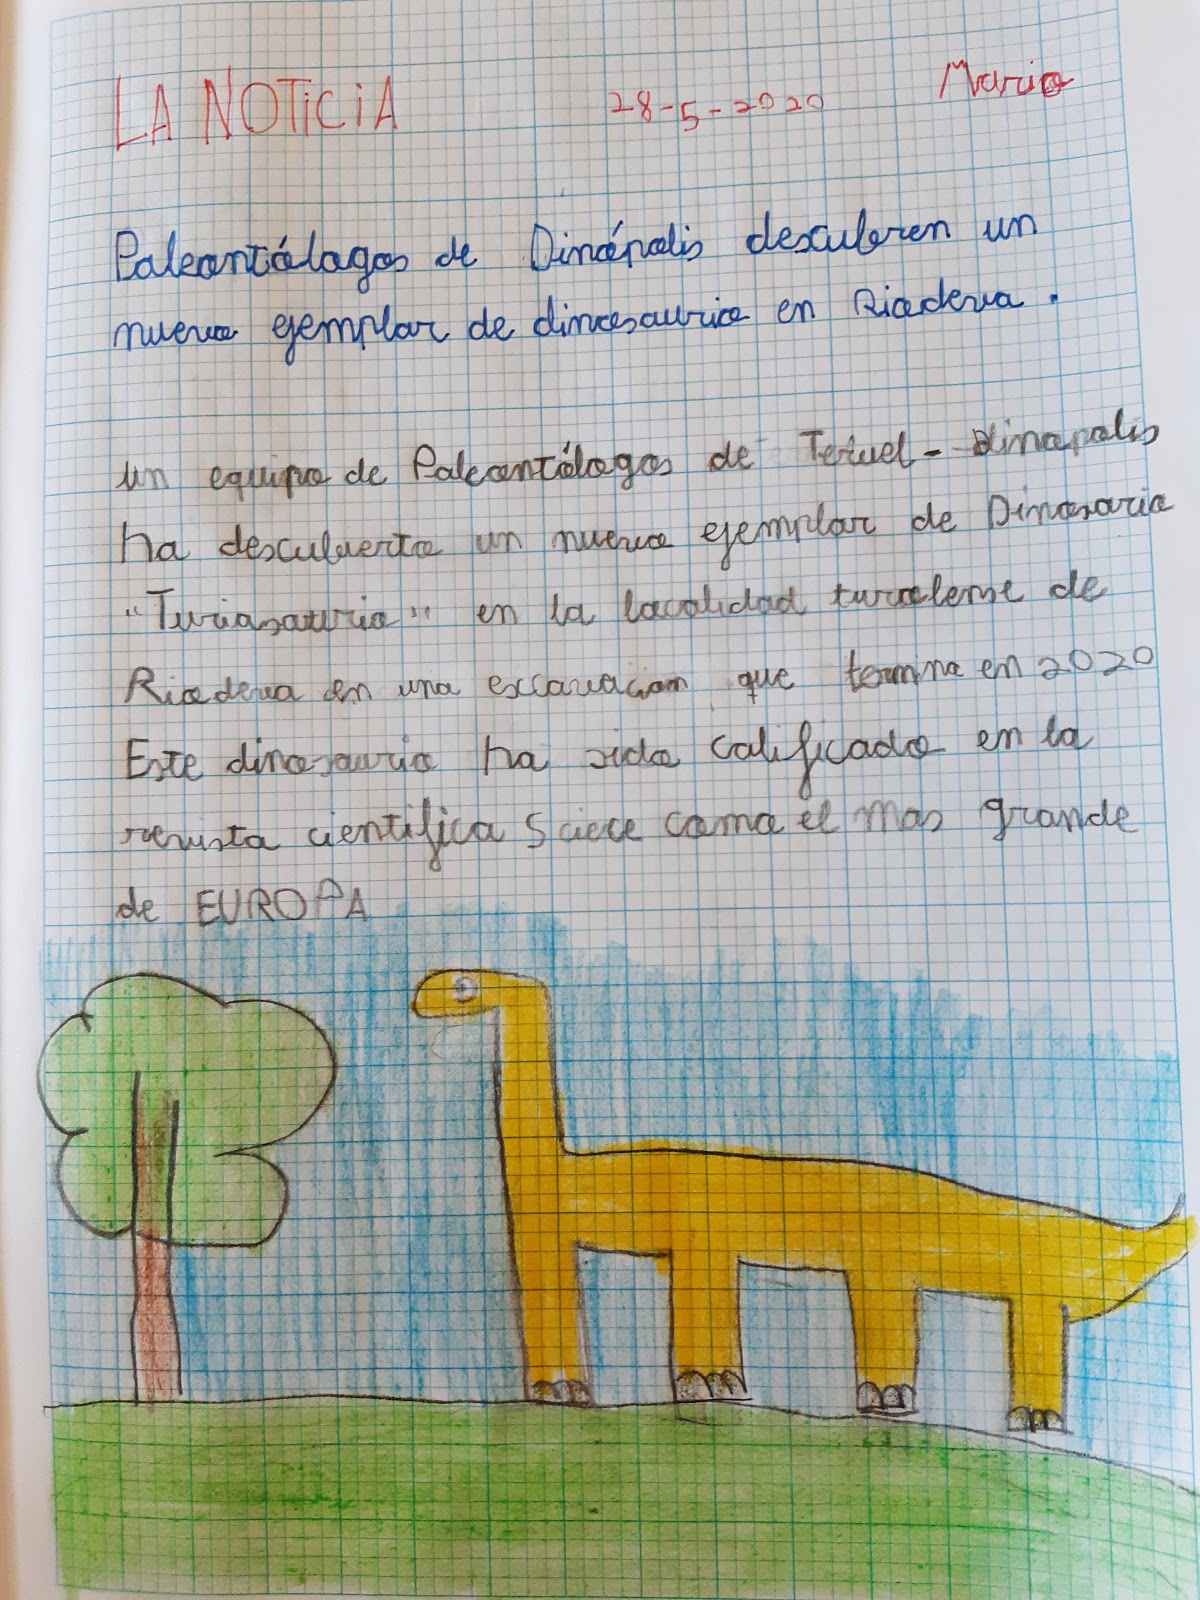 LA NOTICIA 28-5-2020 Mario
Paleontólogos de Dinópolis descubren un
nuevo ejemplar de dinosaurio en Riodeva.
un equipo de Paleontólogos de Teruel-dinopolis
ha descubierto un nuevo ejemplar de Dinosario
"Turiasaurio" en la localidad turolense de
Riodeva en una excavacion que termino en 2020
Este dinosaurio ha sido calificado en la
revista cientifica Sciece como el mas grande
de EUROPA